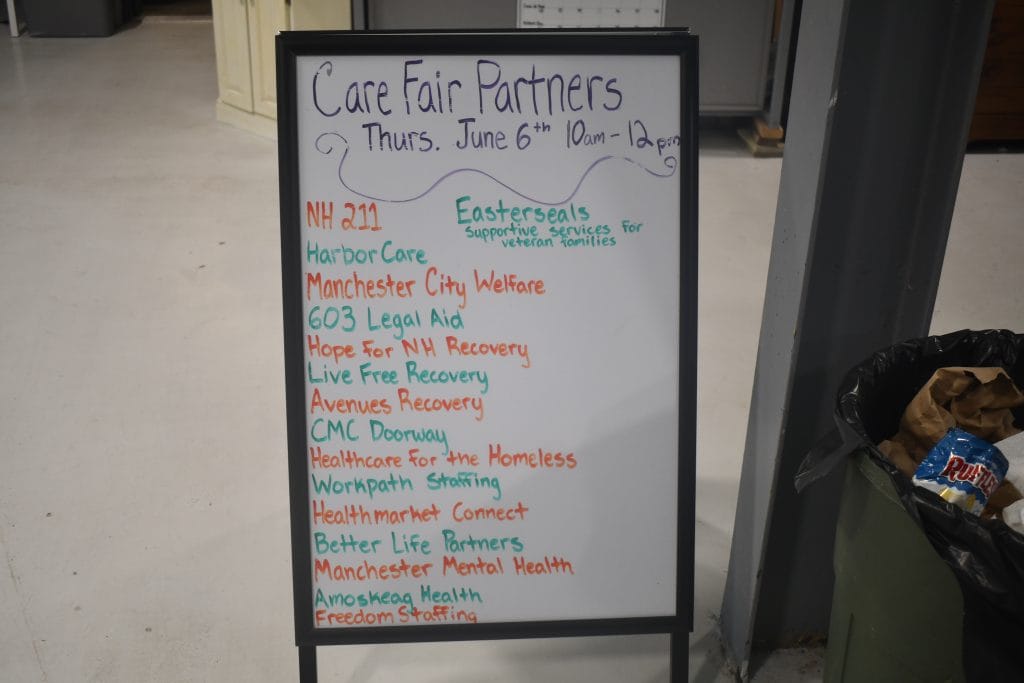 Care Fair Partners
Thurs. June 6th 10am - 12pm
NH 211
Easterseals
supportive services for
veteran families
Harbor Care
Manchester City Welfare
603 Legal Aid
Hope for NH Recovery
Live Free Recovery
Avenues Recovery
CMC Doorway
Healthcare for the Homeless
Workpath Staffing
Healthmarket Connect
Better Life Partners
Manchester Mental Health
Amoskeag Health
Freedom Staffing
RUFFLES